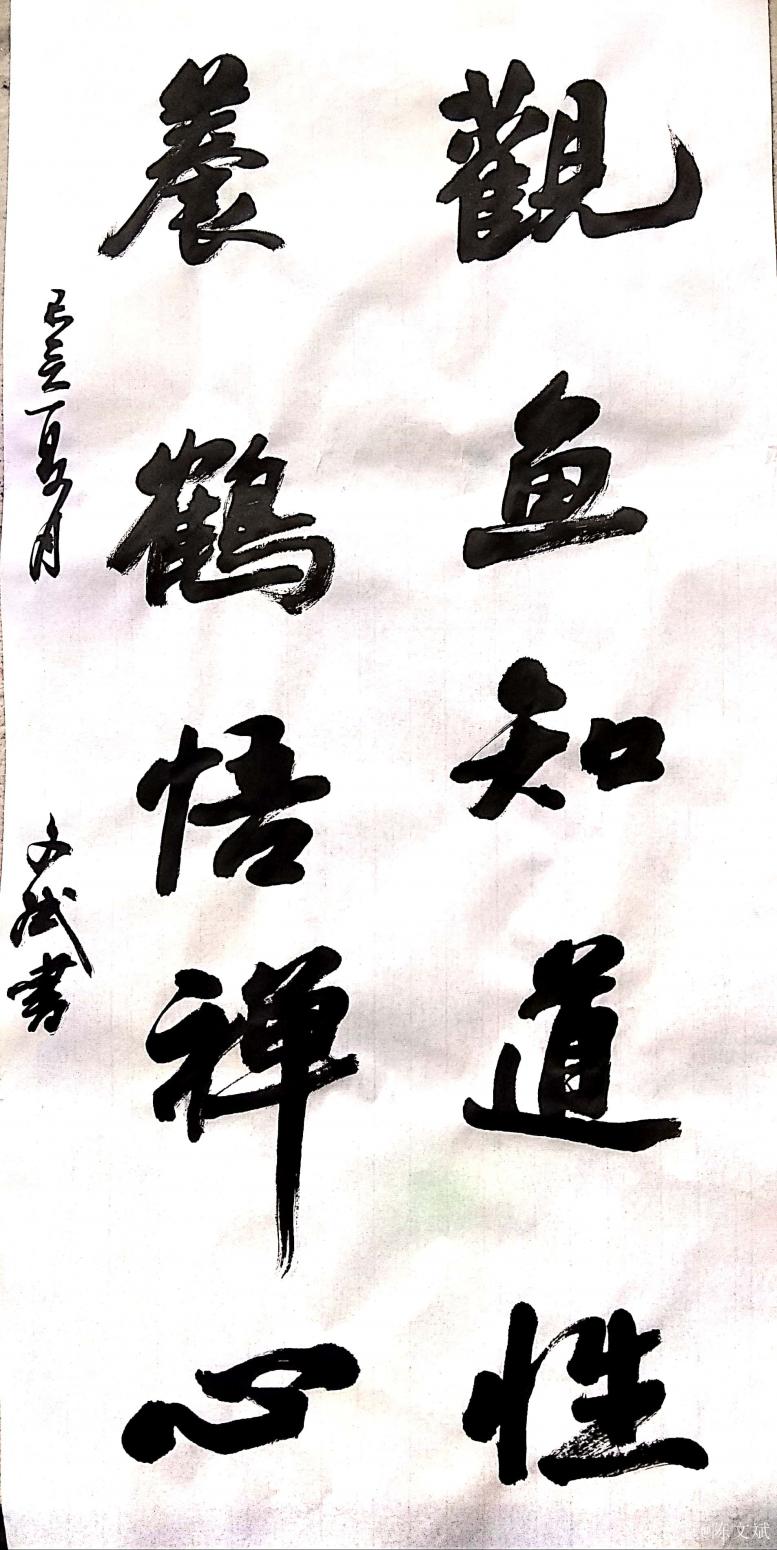 觀鱼知道性
養鶴悟禪心
己亥夏月
文斌书
@陈文斌